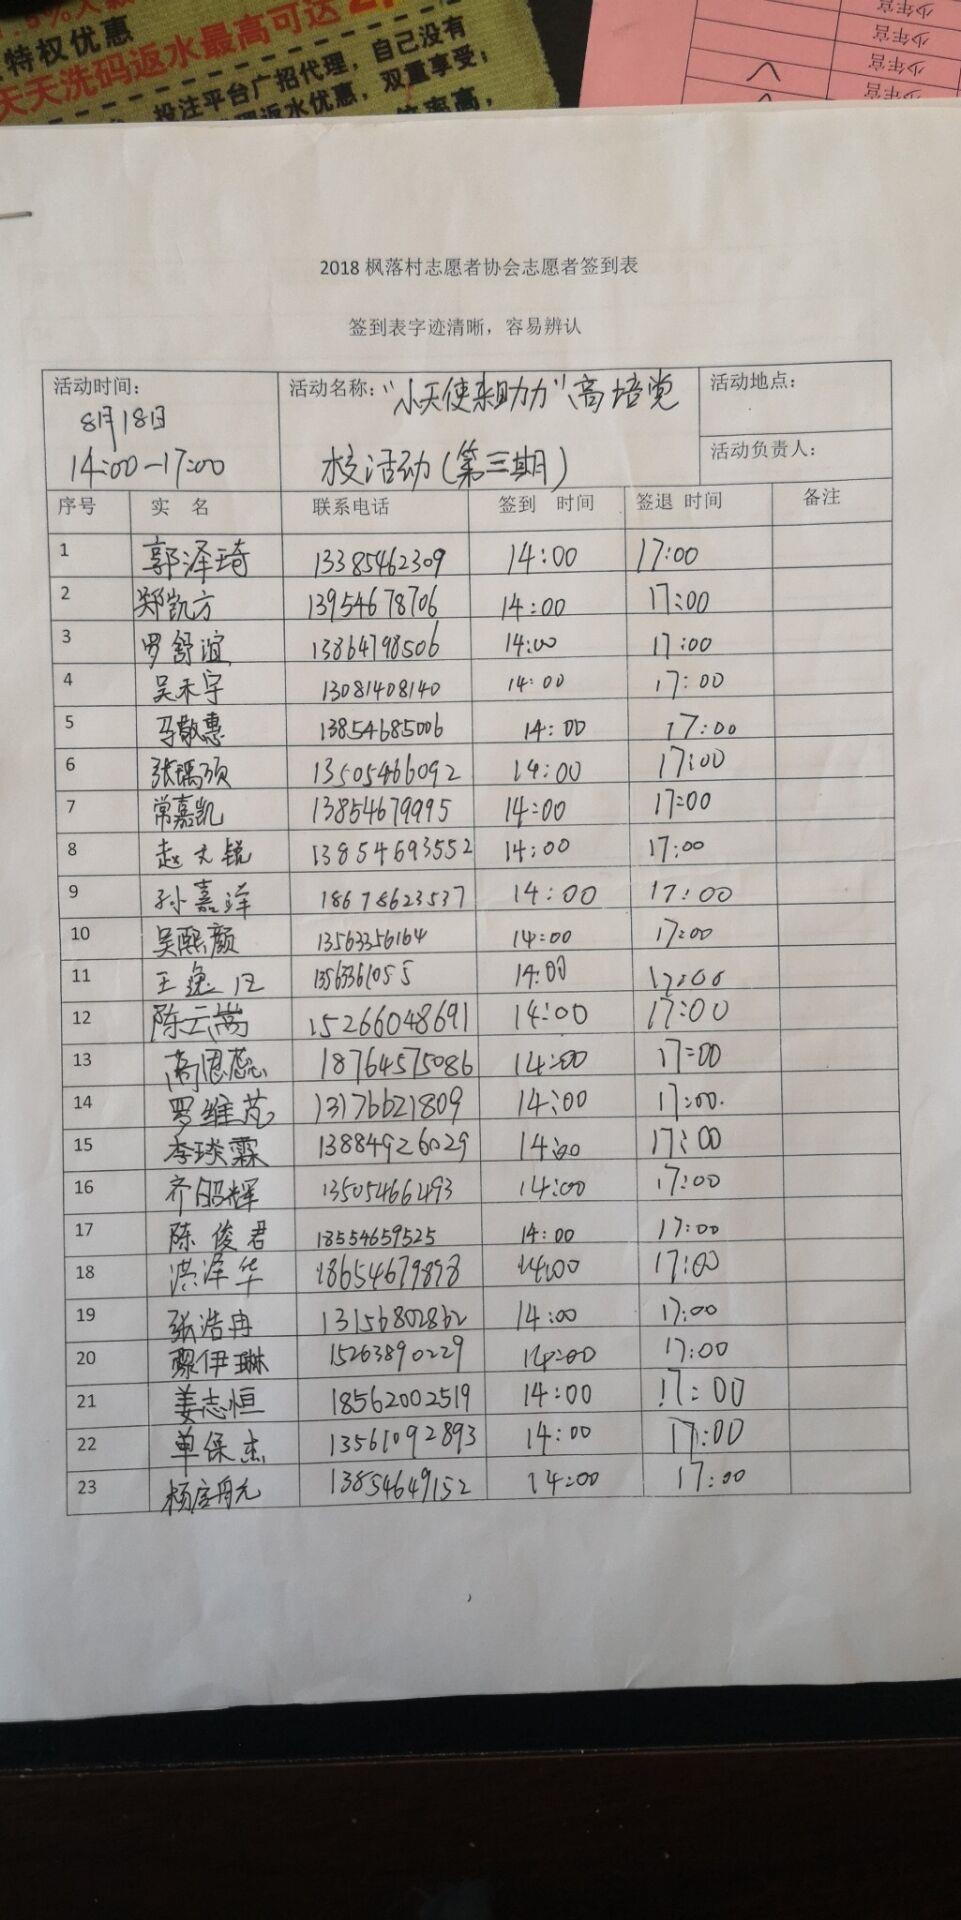 特权优惠
天天洗码返水最高可达
投注平台广招代理，自己没有
返水优惠，双重享受；
率高，
少年宫
少年宫
少年宫
少年宫
2018 枫落村志愿者协会志愿者签到表
签到表字迹清晰，容易辨认
活动时间：
8月18日
14:00-17:00
活动名称：“小天使来助力”高培党
校活动（第三期）
活动地点：
活动负责人：
序号 实 名 联系电话 签到 时间 签退 时间 备注
1 郭泽琦 13385462309 14:00 17:00
2 郑凯方 13954678706 14:00 17:00
3 罗舒谊 13864798506 14:00 17:00
4 吴禾宇 13081408140 14:00 17:00
5 马敬惠 13854685006 14:00 17:00
6 张瑀颀 13505466092 14:00 17:00
7 常嘉凯 13854679995 14:00 17:00
8 赵文锐 13854693552 14:00 17:00
9 孙嘉洋 18678623537 14:00 17:00
10 吴熙颜 13563356164 14:00 17:00
11 王逸 1356361055 14:00 17:00
12 陈云嵩 15266048691 14:00 17:00
13 高恩蕊 18764575086 14:00 17:00
14 罗维芃 13176621809 14:00 17:00.
15 李琰霖 13884926029 14:00 17:00
16 齐昭辉 13505466493 14:00 17:00
17 陈俊君 18554659525 14:00 17:00
18 洪泽华 18654679898 14:00 17:00
19 张浩冉 13156802862 14:00 17:00
20 伊琳 15263890229 14:00 17:00
21 姜志恒 18562002519 14:00 17:00
22 单保杰 13561092893 14:00 17:00
23 杨 13854649152 14:00 17:00